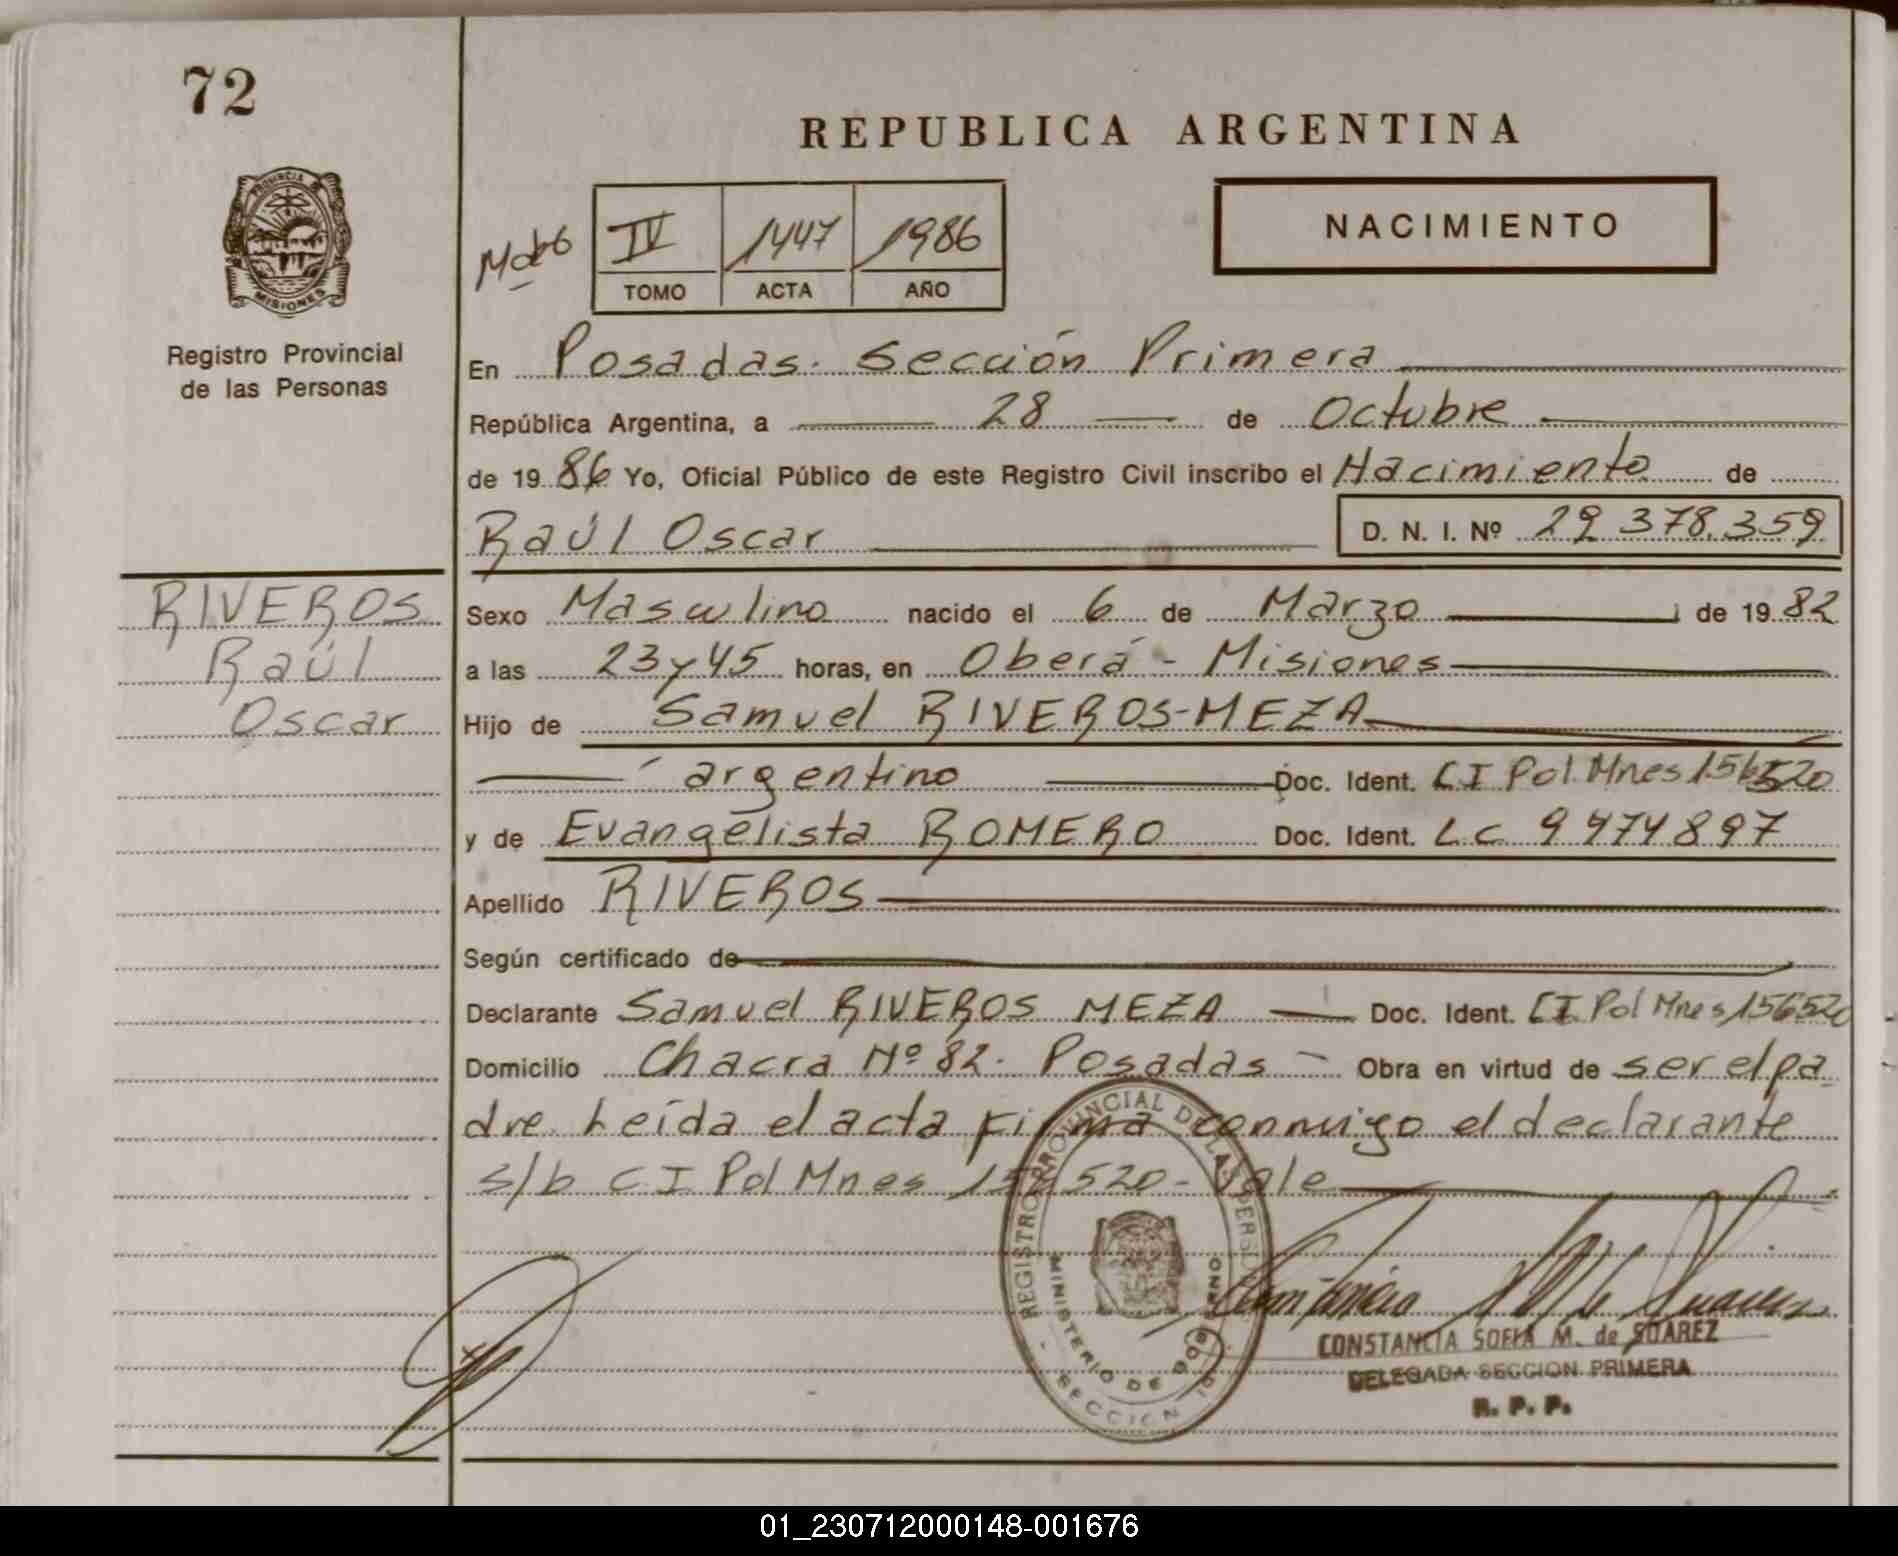 72
REPUBLICA ARGENTINA
PROVINCIA
MISIONES
NACIMIENTO
IV 1447 1986
TOMO ACTA AÑO
Registro Provincial
de las Personas
En Posadas. Sección Primera
República Argentina, a 28 de Octubre
de 19 86 Yo, Oficial Público de este Registro Civil inscribo el Nacimiento de
Raúl Oscar D. N. I. Nº 29.378.359
RIVEROS
Raúl
Oscar
Sexo Masculino nacido el 6 de Marzo de 19 82
a las 23 y 45 horas, en Oberá - Misiones
Hijo de Samuel RIVEROS-MEZA
argentino Doc. Ident. CI Pol Mnes 156520
y de Evangelista ROMERO Doc. Ident. LC 9974897
Apellido RIVEROS
Según certificado de
Declarante Samuel RIVEROS MEZA Doc. Ident. CI Pol Mnes 156520
Domicilio Chacra Nº 82. Posadas - Obra en virtud de ser el pa
dre Leída el acta firma conmigo el declarante
s/b CI Pol Mnes 156520 - Vale
REGISTRO PROVINCIAL DE LAS PERSONAS
MINISTERIO DE GOBIERNO
SECCION 1
CONSTANCIA SOFIA M. de SUAREZ
DELEGADA SECCION PRIMERA
R. P. P.
01_230712000148-001676